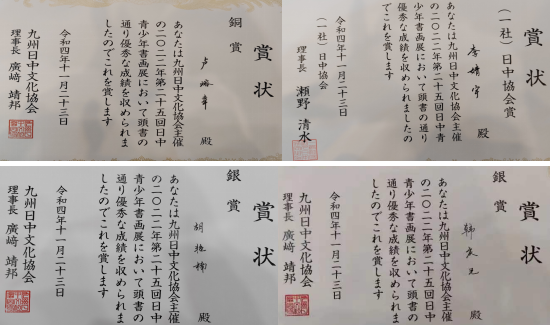 銅賞
殿
あなたは九州日中文化協会主催
の二〇二二年第二十五回日中
青少年書画展において頭書の
通り優秀な成績を収められま
したのでこれを賞します
令和四年十一月二十三日
九州日中文化協会
理事長 廣﨑 靖邦
賞状
（一社）日中協会賞
李婧宇 殿
あなたは九州日中文化協会主催
の二〇二二年第二十五回日中青
少年書画展において頭書の通り
優秀な成績を収められました
のでこれを賞します
令和四年十一月二十三日
（一社）日中協会
理事長 瀬野 清水
賞状
銀賞
胡 殿
あなたは九州日中文化協会主催
の二〇二二年第二十五回日中
青少年書画展において頭書の
通り優秀な成績を収められま
したのでこれを賞します
令和四年十一月二十三日
九州日中文化協会
理事長 廣﨑 靖邦
賞状
銀賞
韩 殿
あなたは九州日中文化協会主催
の二〇二二年第二十五回日中
青少年書画展において頭書の
通り優秀な成績を収められま
したのでこれを賞します
令和四年十一月二十三日
九州日中文化協会
理事長 廣﨑 靖邦